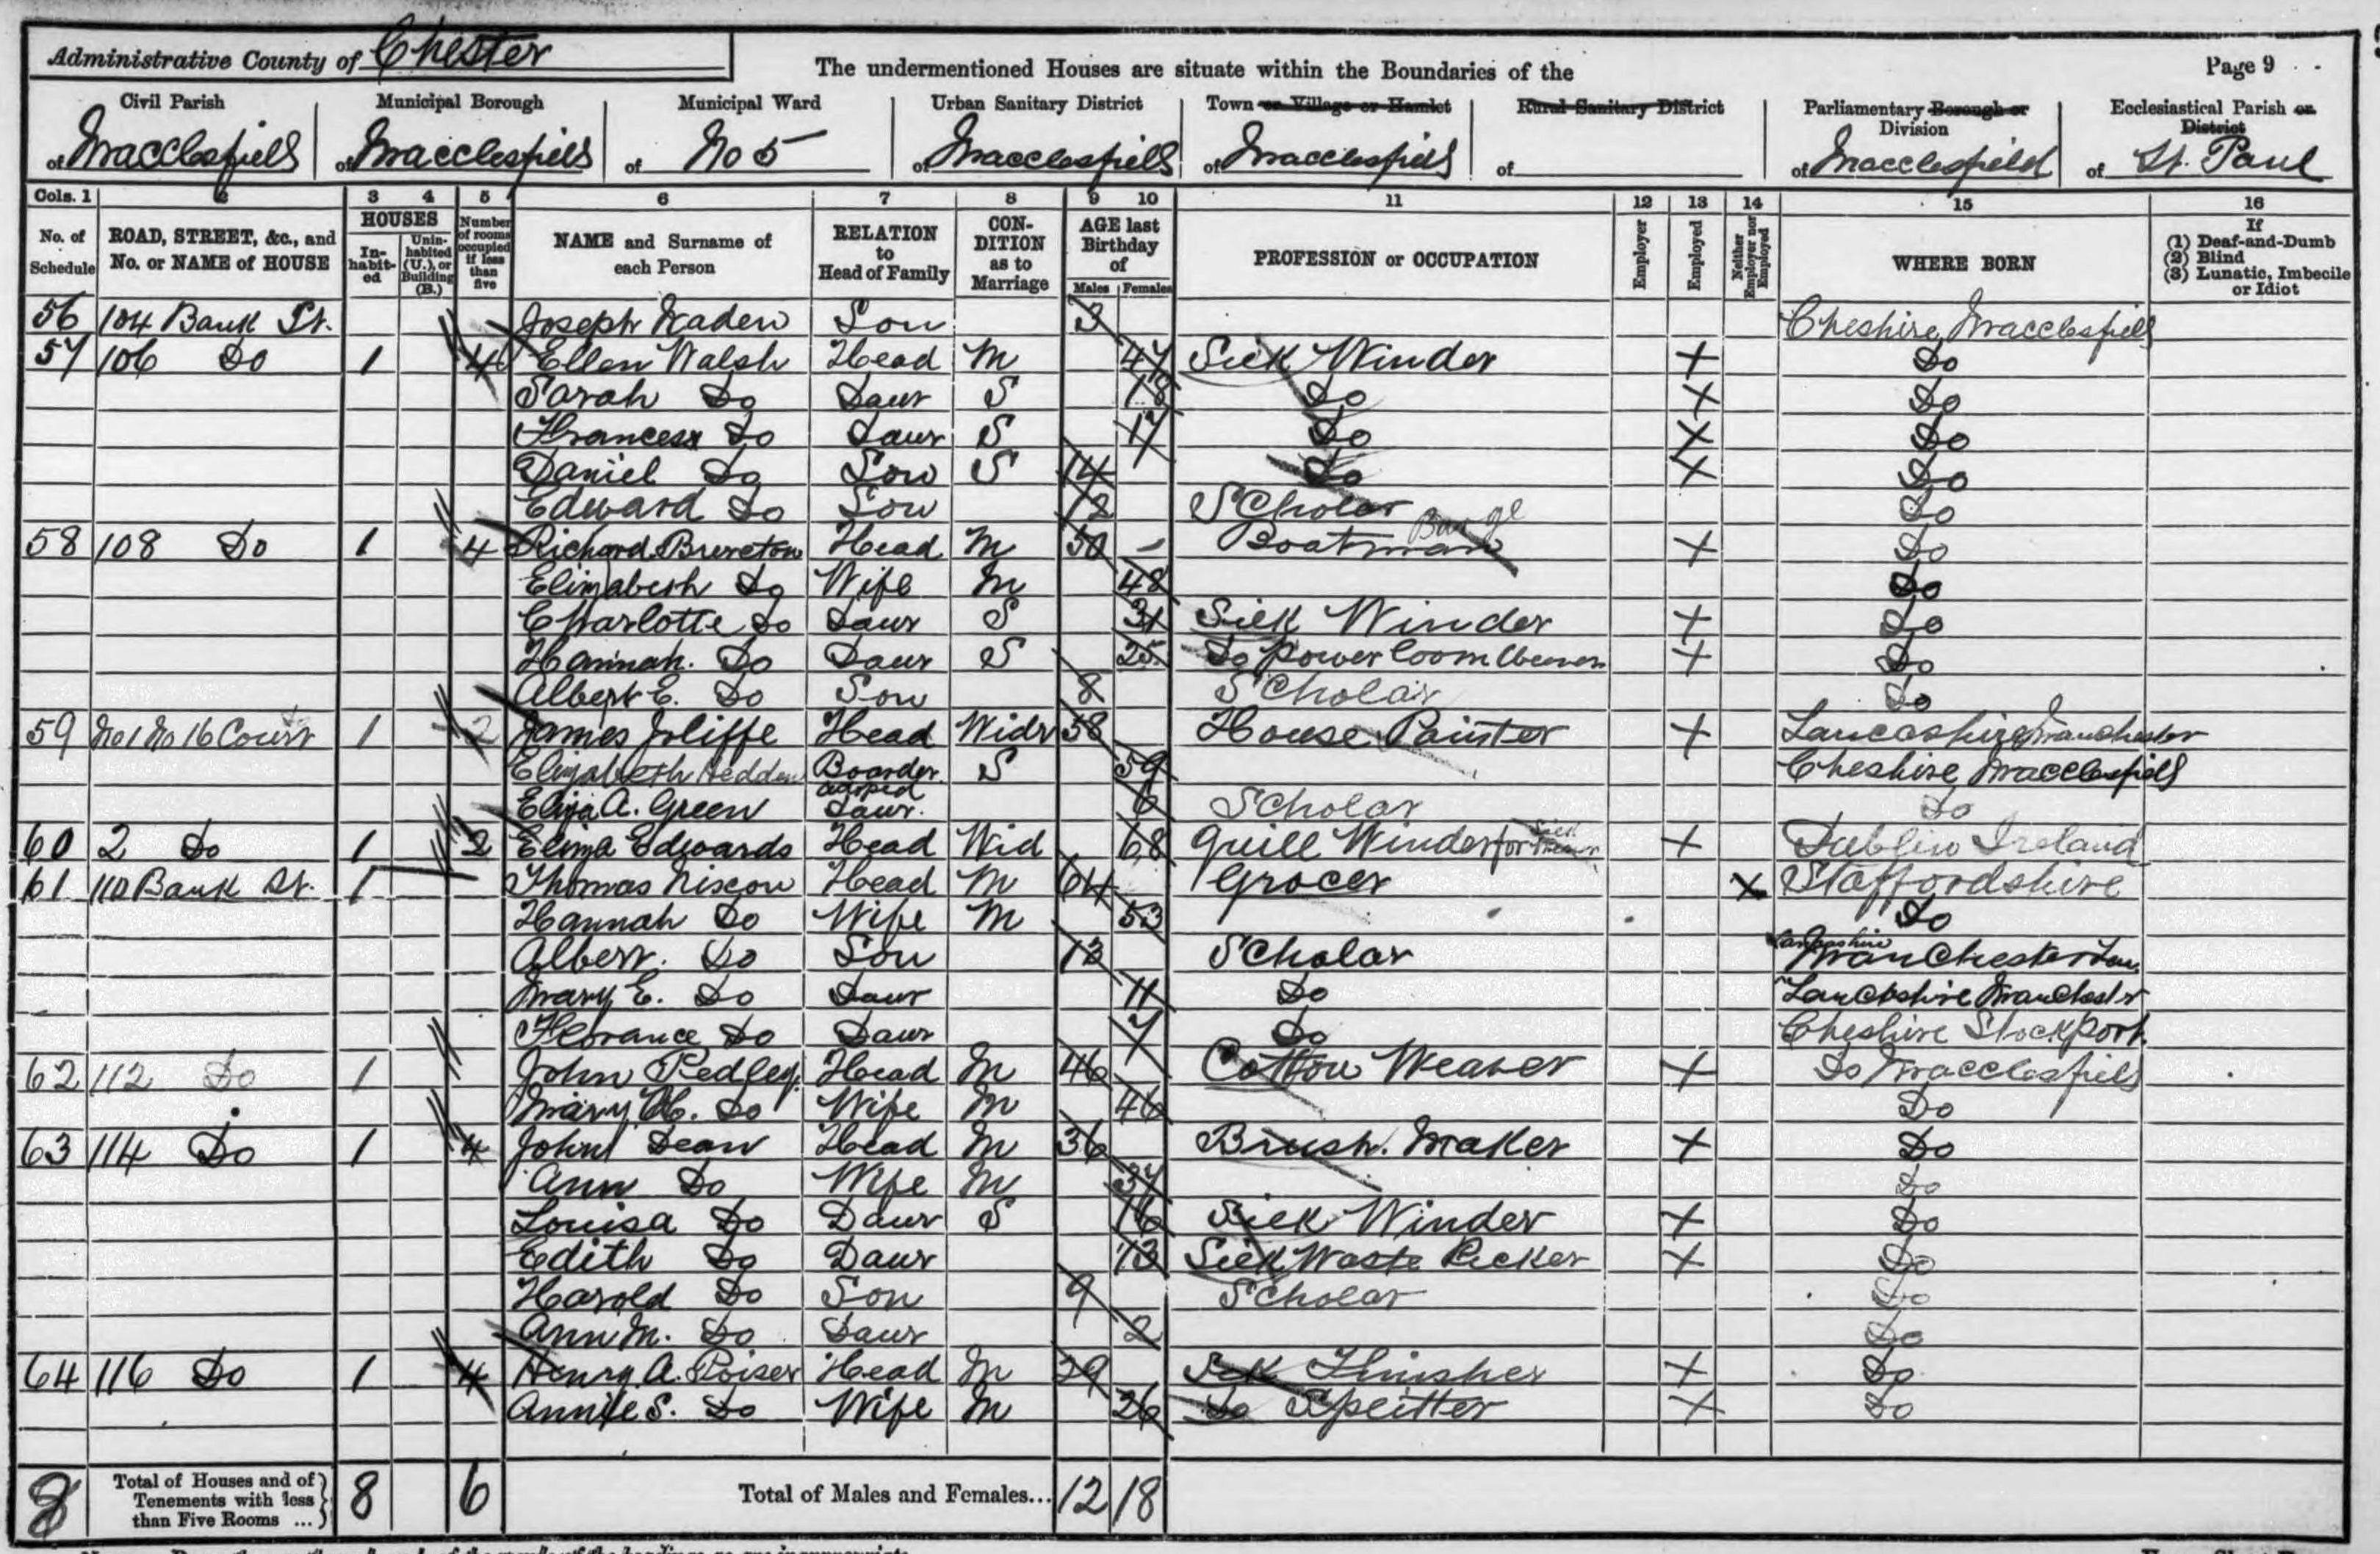 Administrative County of Chester
The undermentioned Houses are situate within the Boundaries of the
Page 9
Civil Parish of Macclesfield
Municipal Borough of Macclesfield
Municipal Ward of No 5
Urban Sanitary District of Macclesfield
Town or Village or Hamlet of Macclesfield
Rural Sanitary District of
Parliamentary Borough or Division of Macclesfield
Ecclesiastical Parish or District of St. Paul
Cols. 1 2 3 4 5 6 7 8 9 10 11 12 13 14 15 16
No. of Schedule
ROAD, STREET, &c., and No. or NAME of HOUSE
HOUSES
Inhabited
Uninhabited (U.), or Building (B.)
Number of rooms occupied if less than five
NAME and Surname of each Person
RELATION to Head of Family
CONDITION as to Marriage
AGE last Birthday of
Males Females
PROFESSION or OCCUPATION
Employer
Employed
Neither Employer nor Employed
WHERE BORN
If
(1) Deaf-and-Dumb
(2) Blind
(3) Lunatic, Imbecile or Idiot
56 104 Bank St. Joseph Son 3 Cheshire Macclesfield
57 106 Do 1 4 Ellen Walsh Head M 47 Silk Winder X Do
Sarah Do Daur S 18 Do X Do
Frances Do Daur S 17 Do X Do
Daniel Do Son S 14 Do X Do
Edward Do Son 12 Scholar Do
58 108 Do 1 4 Richard Brereton Head M 50 – Boatman Barge X Do
Elizabeth Do Wife M 48 Do
Charlotte Do Daur S 31 Silk Winder X Do
Hannah. Do Daur S 25 Do Power Loom Weaver X Do
Albert E. Do Son 8 Scholar Do
59 No 1 No 16 Court 1 2 James Joliffe Head Widr 58 House Painter X Lancashire Manchester
Elizabeth Boarder S 59 Cheshire Macclesfield
Eliza A. Green adopted Daur. 6 Scholar Do
60 2 Do 1 2 Eliza Edwards Head Wid 68 Quill Winder for X Dublin Ireland
61 110 Bank St. 1 Thomas Nixon Head M 64 Grocer X Staffordshire
Hannah Do Wife M 53 Do
Albert. Do Son 13 Scholar Lancashire Manchester Lan.
Mary E. Do Daur 11 Do Lancashire Manchester
Florance Do Daur 7 Do Cheshire Stockport.
62 112 Do 1 John Pedley. Head M 46 Cotton Weaver X Do Macclesfield
Mary H. Do Wife M 46 Do
63 114 Do 1 4 John Dean Head M 36 Brush. Maker X Do
Ann Do Wife M 37 Do
Louisa Do Daur S 16 Silk Winder X Do
Edith Do Daur 13 Silk Waste Picker X Do
Harold Do Son 9 Scholar Do
Ann M. Do Daur 2 Do
64 116 Do 1 4 Henry A. Poiser Head M 29 Silk Finisher X Do
Annie S. Do Wife M 26 Do Splitter X Do
8 Total of Houses and of Tenements with less than Five Rooms ... 8 6 Total of Males and Females... 12 18